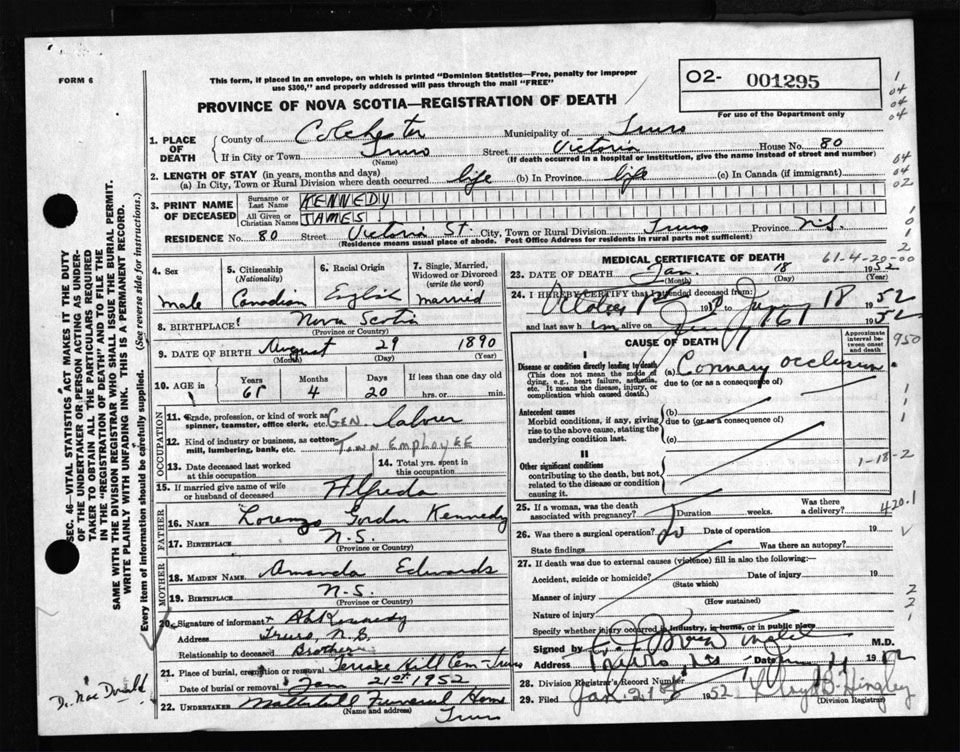 FORM 6
This form, if placed in an envelope, on which is printed "Dominion Statistics—Free, penalty for improper
use $300," and properly addressed will pass through the mail "FREE"
O2- 001295
For use of the Department only
PROVINCE OF NOVA SCOTIA—REGISTRATION OF DEATH
1. PLACE OF DEATH { County of Colchester Municipality of Truro
If in City or Town Truro (Name) Street Victoria House No. 80
(If death occurred in a hospital or institution, give the name instead of street and number)
2. LENGTH OF STAY (in years, months and days)
(a) In City, Town or Rural Division where death occurred life (b) In Province life (c) In Canada (if immigrant)
3. PRINT NAME OF DECEASED { Surname or Last Name KENNEDY
All Given or Christian Names JAMES
RESIDENCE No. 80 Street Victoria St. City, Town or Rural Division Truro Province N.S.
(Residence means usual place of abode. Post Office Address for residents in rural parts not sufficient)
4. Sex male
5. Citizenship (Nationality) Canadian
6. Racial Origin English
7. Single, Married, Widowed or Divorced (write the word) married
8. BIRTHPLACE: Nova Scotia
(Province or Country)
9. DATE OF BIRTH August 29 1890
(Month) (Day) (Year)
10. AGE in { Years 61 Months 4 Days 20 If less than one day old hrs. or min.
OCCUPATION
11. Grade, profession, or kind of work as spinner, teamster, office clerk, etc. GEN. labour
12. Kind of industry or business, as cotton mill, lumbering, bank, etc. TOWN EMPLOYEE
13. Date deceased last worked at this occupation
14. Total yrs. spent in this occupation
15. If married give name of wife or husband of deceased Alfreda
FATHER
16. NAME Lorenzo Gordon Kennedy
17. BIRTHPLACE N.S.
(Province or Country)
MOTHER
18. MAIDEN NAME Amanda Edwards
19. BIRTHPLACE N.S.
(Province or Country)
20. Signature of informant Kennedy
Address Truro, N.S.
Relationship to deceased Brother
21. Place of burial, cremation or removal Hill Cem - Truro
Date of burial or removal Jan 21st 1952
22. UNDERTAKER Funeral Home
(Name and address) Truro
MEDICAL CERTIFICATE OF DEATH
61-4-20-00
23. DATE OF DEATH Jan. 18 1952
(Month) (Day) (Year)
24. I HEREBY CERTIFY that I attended deceased from:
18 1952
and last saw h im alive on 1952
CAUSE OF DEATH
Approximate interval between onset and death
I
Disease or condition directly leading to death
(This does not mean the mode of dying, e.g., heart failure, asthenia, etc. It means the disease, injury, or complication which caused death.)
(a) Coronary occlusion
due to (or as a consequence of)
Antecedent causes
Morbid conditions, if any, giving rise to the above cause, stating the underlying condition last.
(b)
due to (or as a consequence of)
(c)
II
Other significant conditions
contributing to the death, but not related to the disease or condition causing it.
1-18-2
25. If a woman, was the death associated with pregnancy? Duration weeks. Was there a delivery?
420.1
26. Was there a surgical operation? Date of operation 19
State findings Was there an autopsy?
27. If death was due to external causes (violence) fill in also the following:
Accident, suicide or homicide? Date of injury 19
(State which)
Manner of injury
(How sustained)
Nature of injury
Specify whether injury occurred in industry, in home, or in public place
Signed by M.D.
Address Truro NS Date 1952
28. Division Registrar's Record Number
29. Filed Jan. 21st 1952 Lloyd B. Hingley
(Division Registrar)
950
Dr. MacDonald
SEC. 46—VITAL STATISTICS ACT MAKES IT THE DUTY
OF THE UNDERTAKER OR PERSON ACTING AS UNDERTAKER
TO OBTAIN ALL THE PARTICULARS REQUIRED
IN THE "REGISTRATION OF DEATH" AND TO FILE THE
SAME WITH THE DIVISION REGISTRAR WHO SHALL ISSUE THE BURIAL PERMIT.
WRITE PLAINLY WITH UNFADING INK. THIS IS A PERMANENT RECORD.
Every item of information should be carefully supplied. (See reverse side for instructions.)